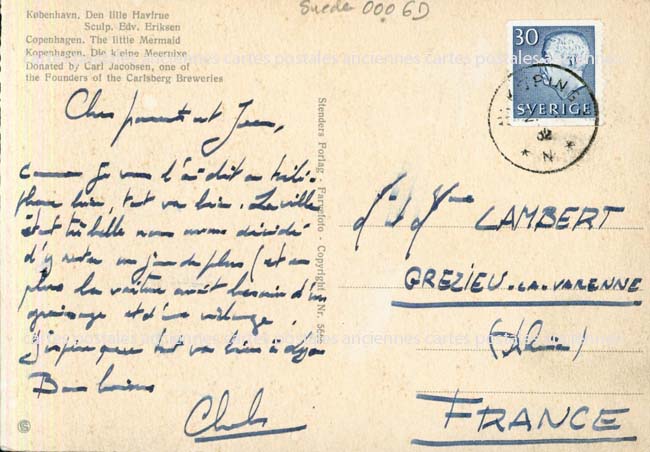 København. Den lille Havfrue
Sculp. Edv. Eriksen
Copenhagen. The little Mermaid
Kopenhagen. Die kleine Meernixe
Donated by Carl Jacobsen, one of
the Founders of the Carlsberg Breweries
Suede 0006D
30
SVERIGE
KÖPING
62
N
cartes postales anciennes cartes postales anciennes cartes postales
Stenders Forlag - Farvefoto - Copyright Nr.
Cher parents et Jean,
comme je vous l'ai dit au télé-
phone hier, tout va bien. La ville
était très belle nous avons décidé
d'y rester un jour de plus (et en
plus la voiture avait besoin d'un
graissage et d'une vidange
J'espère que tout va bien à Lyon
Bons baisers
LAMBERT
GREZIEU-LA-VARENNE
(Rhône)
FRANCE
cartes postales anciennes cartes postales anciennes cartes postales